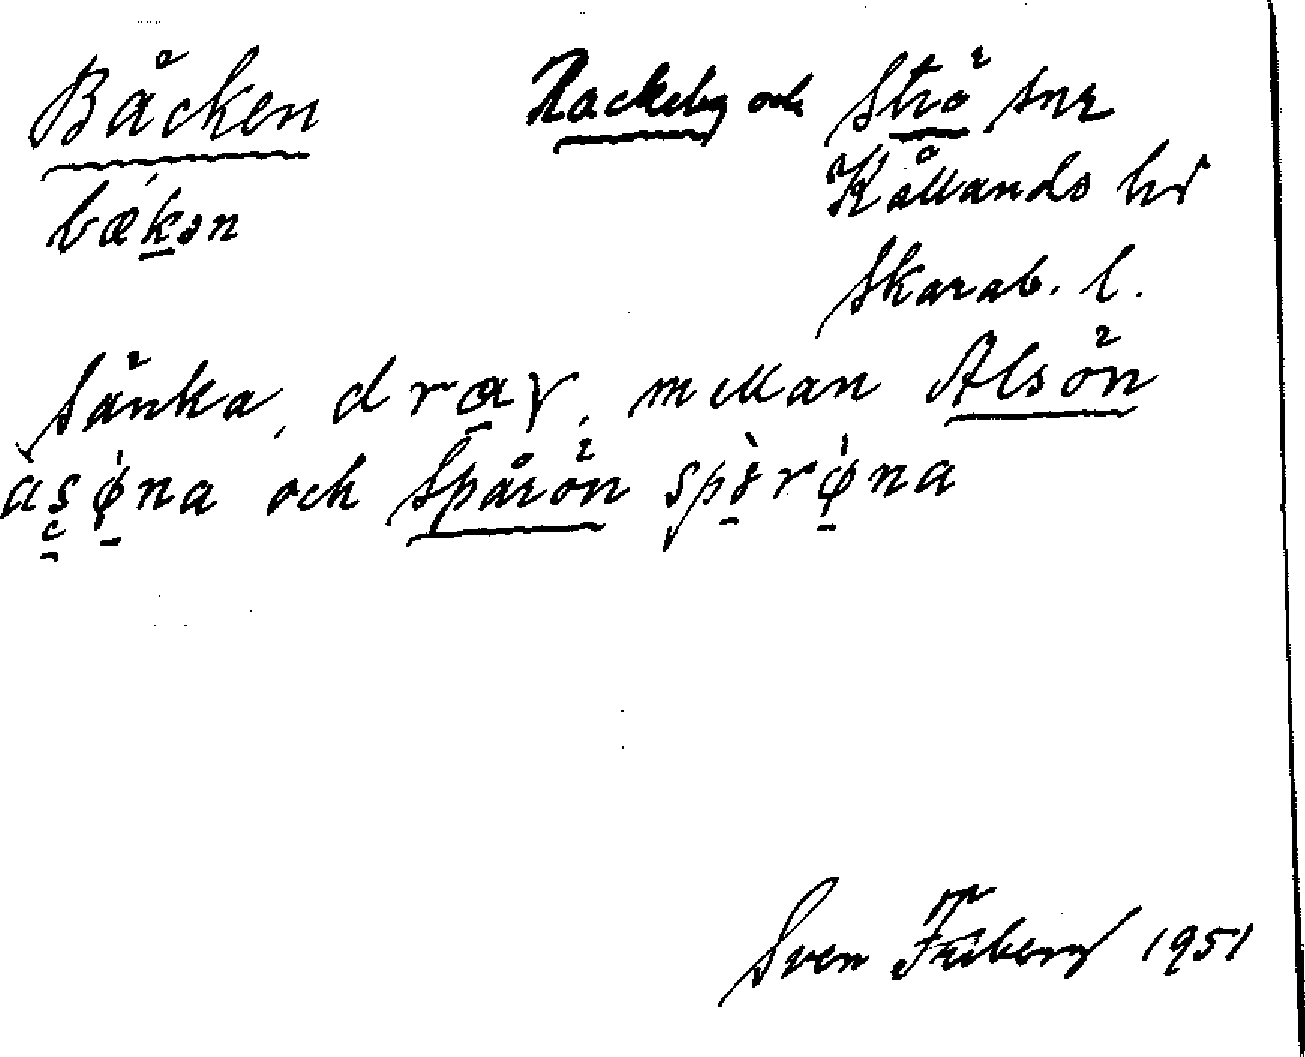 Bäcken Rackeby och Strö snr
bæ̀kən Kållands hd
Skarab. l.
sänka, draγ, mellan Alsön
àsøna och Spårön spòrøna
Sven Friberg 1951